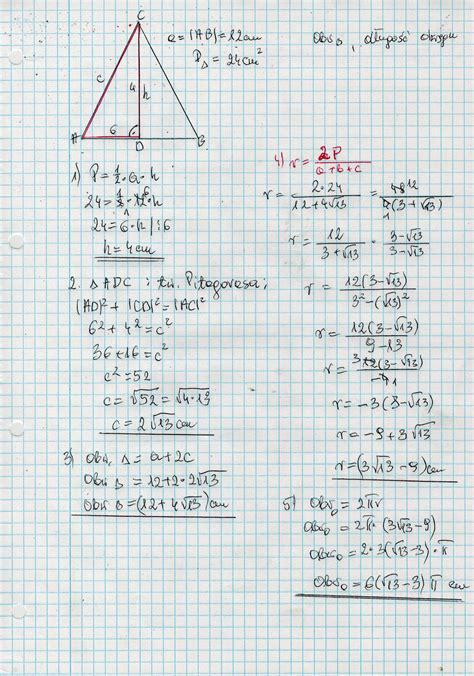 C
a = |AB| = 12cm
P△ = 24cm²
Obw △, długość okręgu
c
4
h
6
A
D
B
1) P = ½ · a · h
24 = ½ · 12⁶ · h
1
24 = 6 · h | : 6
h = 4cm
2. △ ADC i tw. Pitagorasa:
|AD|² + |CD|² = |AC|²
6² + 4² = c²
36 + 16 = c²
c² = 52
c = √52 = √4·13
c = 2√13 cm
3) Obw. △ = a + 2c
Obw △ = 12 + 2 · 2√13
Obw △ = (12 + 4√13) cm
4) r = 2P / a+b+c
r = 2·24 / 12+4√13 = 48¹² / 4₁(3+√13)
r = 12 / 3+√13 · 3-√13 / 3-√13
r = 12(3-√13) / 3²-(√13)²
r = 12(3-√13) / 9-13
r = ³12(3-√13) / -4₁
r = -3(3-√13)
r = -9 + 3√13
r = (3√13 - 9) cm
5) Obw₀ = 2πr
Obw₀ = 2π · (3√13 - 9)
Obw₀ = 2 · 3(√13 - 3) · π
Obw₀ = 6(√13 - 3) π cm